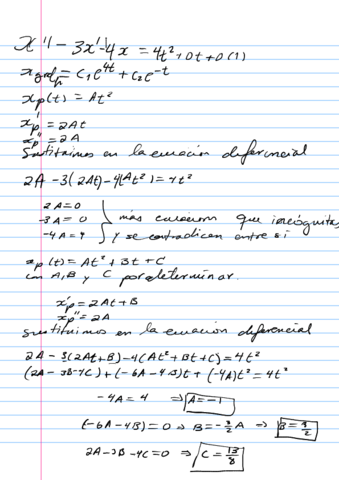 x'' - 3x' - 4x = 4t² + 0t + 0(1)
x = C₁e^4t + C₂e^-t
xp(t) = At²
x'p = 2At
x''p = 2A
Sustituimos en la ecuación diferencial
2A - 3(2At) - 4(At²) = 4t²
2A = 0
-3A = 0
-4A = 4
más ecuaciones que incógnitas
y se contradicen entre sí
xp(t) = At² + Bt + C
con A, B y C por determinar.
x'p = 2At + B
x''p = 2A
sustituimos en la ecuación diferencial
2A - 3(2At + B) - 4(At² + Bt + C) = 4t²
(2A - 3B - 4C) + (-6A - 4B)t + (-4A)t² = 4t²
-4A = 4 ⇒ A = -1
(-6A - 4B) = 0 ⇒ B = -3/2 A ⇒ B = 3/2
2A - 3B - 4C = 0 ⇒ C = 13/8